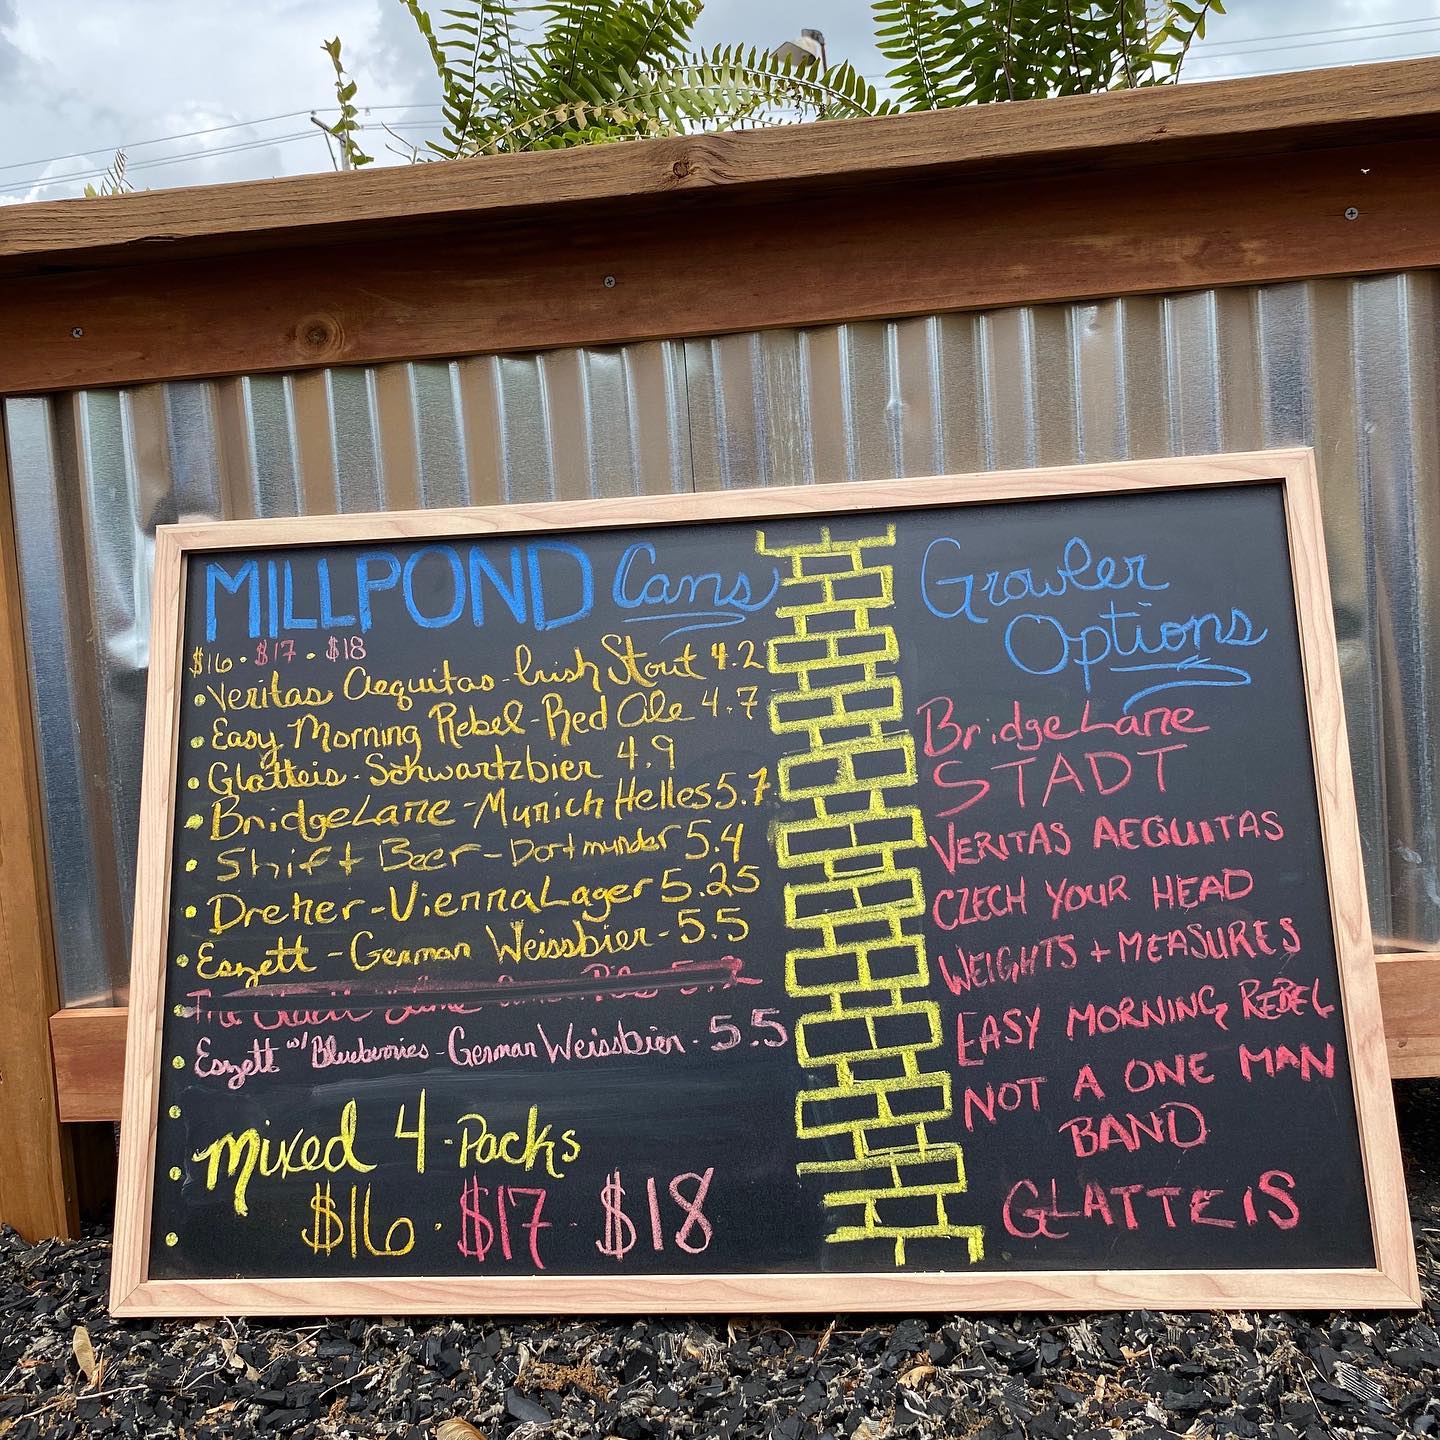 MILLPOND Cans
$16 · $17 · $18
• Veritas Aequitas - Irish Stout 4.2
• Easy Morning Rebel - Red Ale 4.7
• Glatteis - Schwartzbier 4.9
• BridgeLane - Munich Helles 5.7
• Shift Beer - Dortmunder 5.4
• Dreher - Vienna Lager 5.25
• Eszett - German Weissbier - 5.5
• The
• Eszett w/ Blueberries - German Weissbier - 5.5
Mixed 4-Packs
$16 · $17 · $18
Growler
Options
BridgeLane
STADT
VERITAS AEQUITAS
CZECH YOUR HEAD
WEIGHTS + MEASURES
EASY MORNING REBEL
NOT A ONE MAN
BAND
GLATTEIS